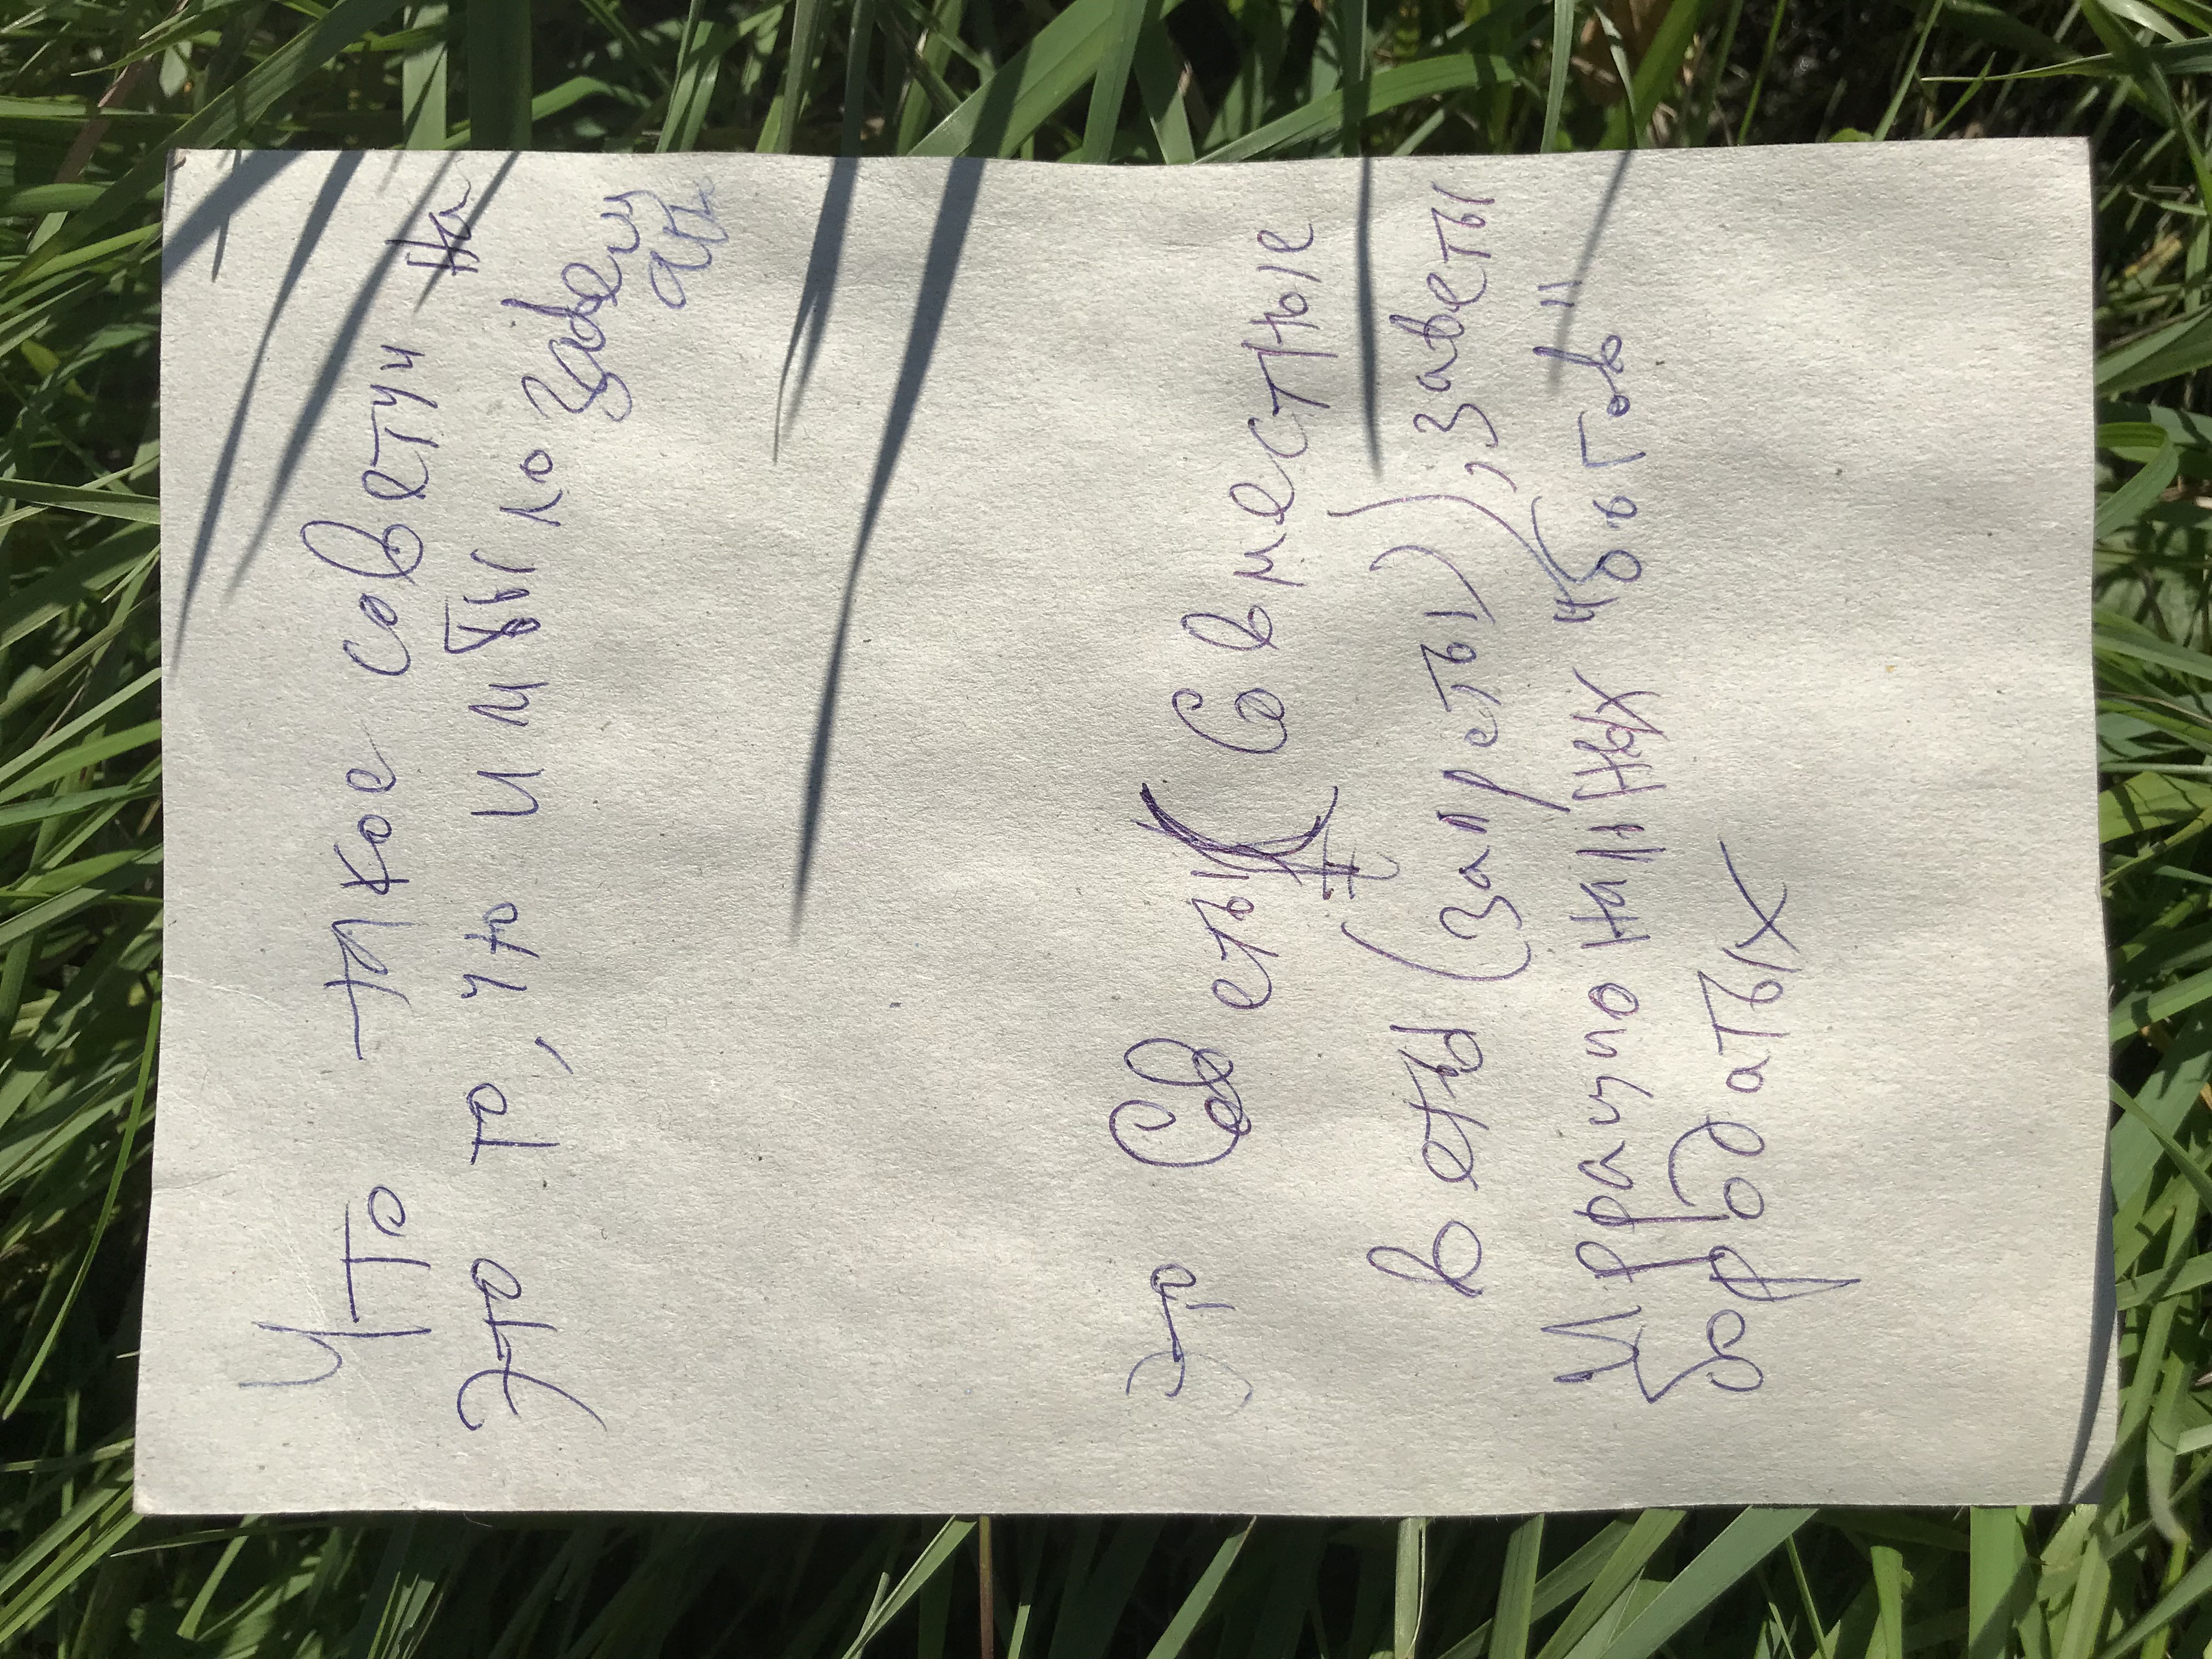 Что такое советчи
Это то, что им было на
завещ
ать
Это Советы (Совместные
веты (запреты)), заветы
Иррациональных "богов"
бородатых